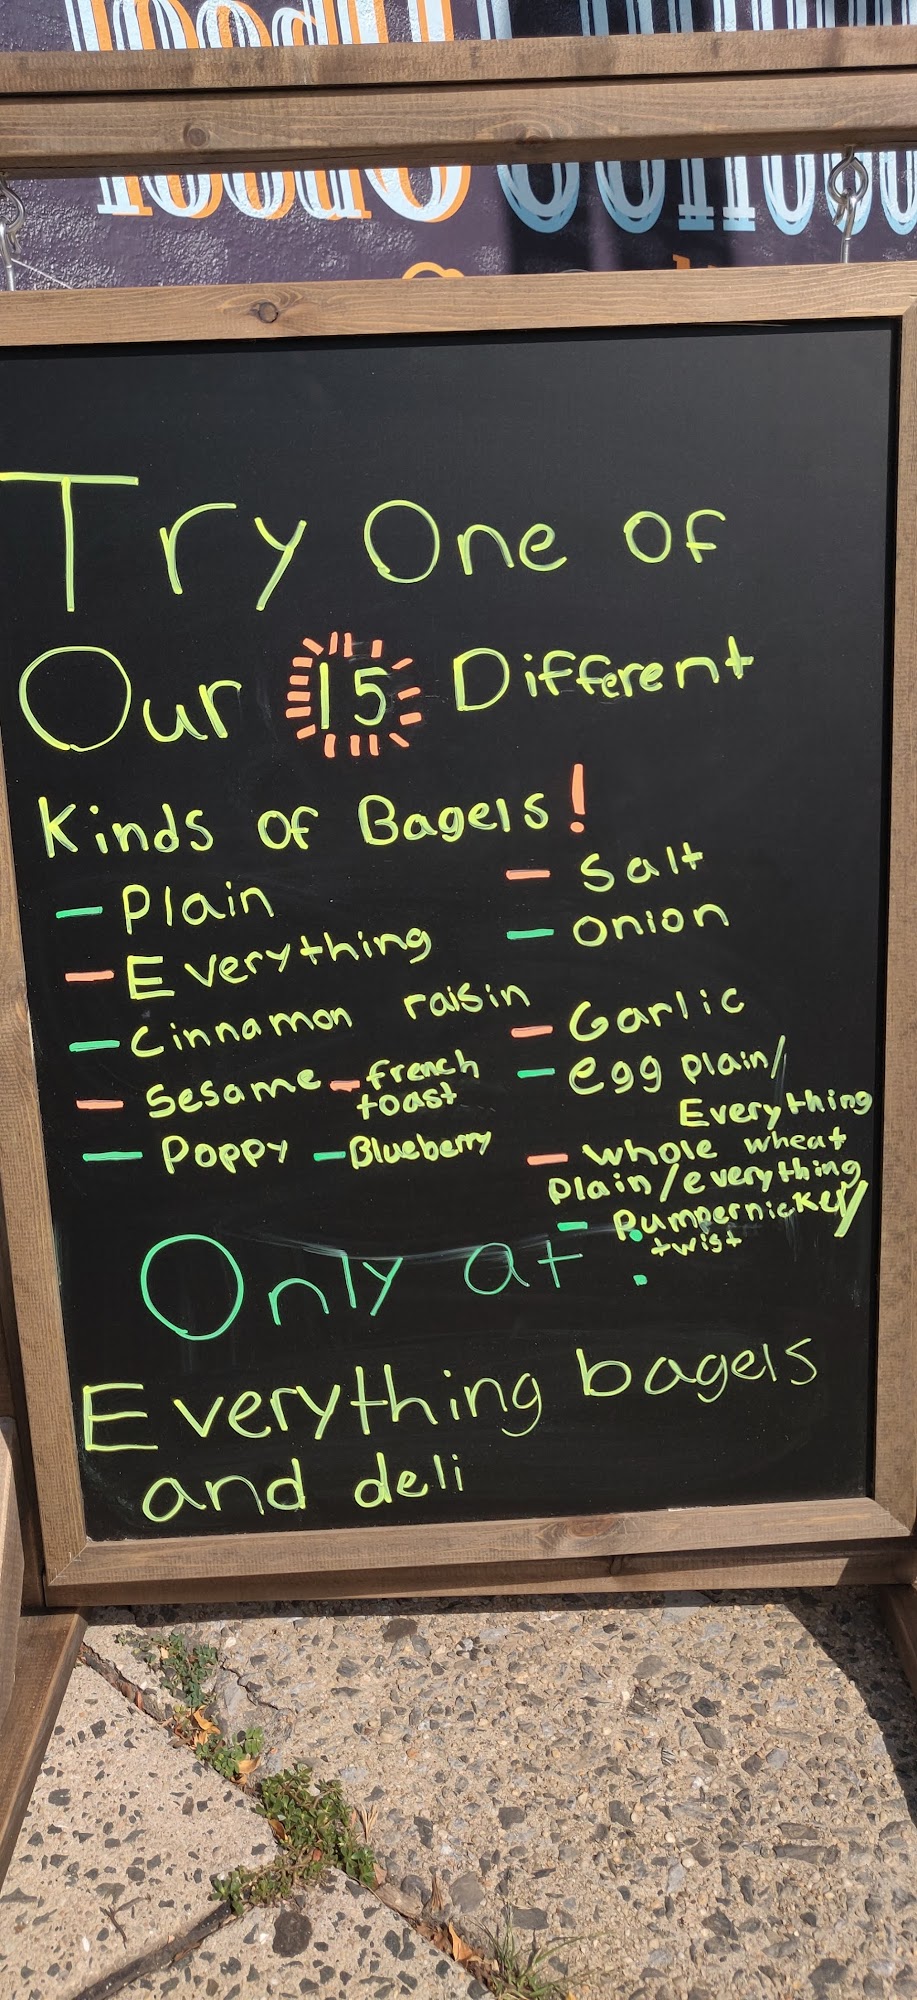 Try One of
Our 15 Different
Kinds of Bagels!
- Plain
- Everything
- Cinnamon raisin
- Sesame
- french
toast
- Poppy
- Blueberry
- Salt
- onion
- Garlic
- egg plain/
Everything
- whole wheat
plain/everything
- Pumpernickel/
twist
Only at :
Everything bagels
and deli